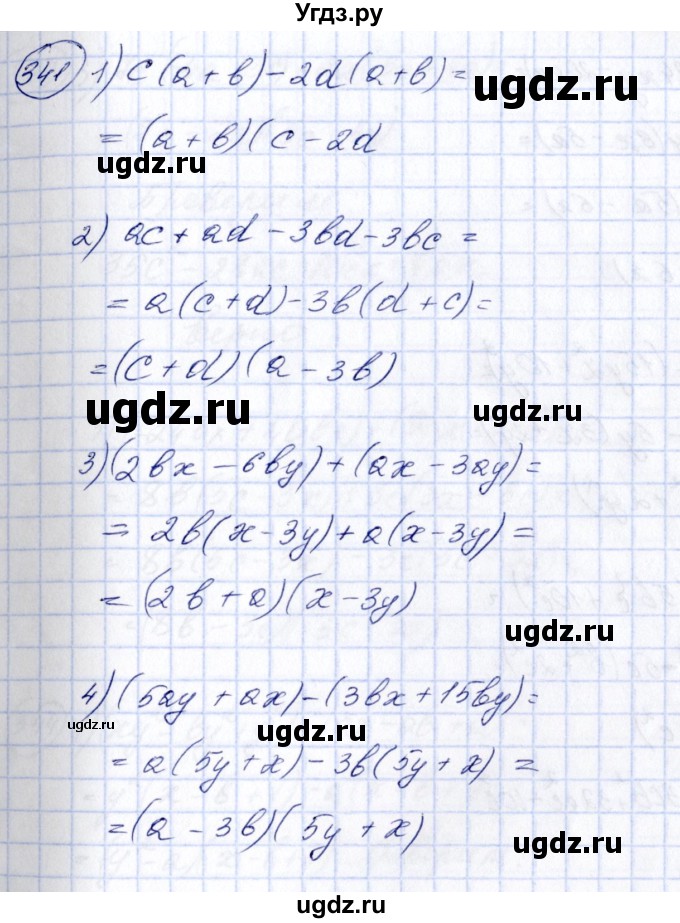 Угдз.ру
341 1) c(a+b)-2d(a+b)=
ugdz.ru
=(a+b)(c-2d
ugdz.ru
2) ac+ad-3bd-3bc=
=a(c+d)-3b(d+c)=
=(c+d)(a-3b)
ugdz.ru
ugdz.ru
3)(2bx-6by)+(ax-3ay)=
=2b(x-3y)+a(x-3y)=
=(2b+a)(x-3y)
ugdz.ru
4)(5ay+ax)-(3bx+15by)=
ugdz.ru
ugdz.ru
=a(5y+x)-3b(5y+x)=
=(a-3b)(5y+x)
ugdz.ru
ugdz.ru